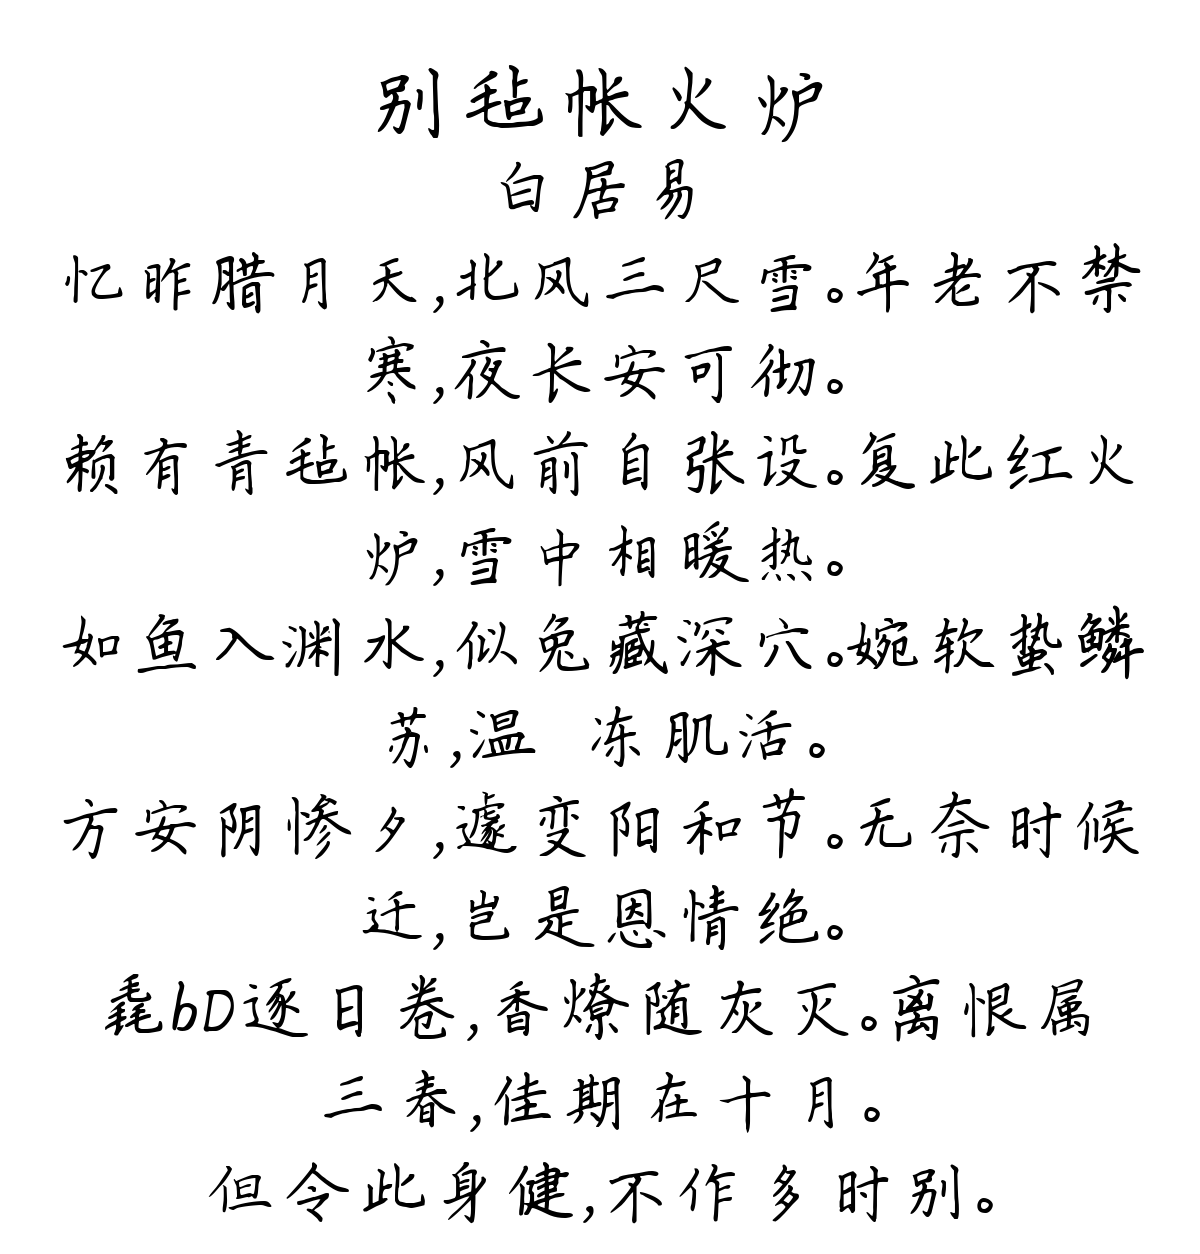 别毡帐火炉
白居易
忆昨腊月天,北风三尺雪。年老不禁
寒,夜长安可彻。
赖有青毡帐,风前自张设。复此红火
炉,雪中相暖热。
如鱼入渊水,似兔藏深穴。婉软蛰鳞
苏,温 冻肌活。
方安阴惨夕,遽变阳和节。无奈时候
迁,岂是恩情绝。
毳bD逐日卷,香燎随灰灭。离恨属
三春,佳期在十月。
但令此身健,不作多时别。